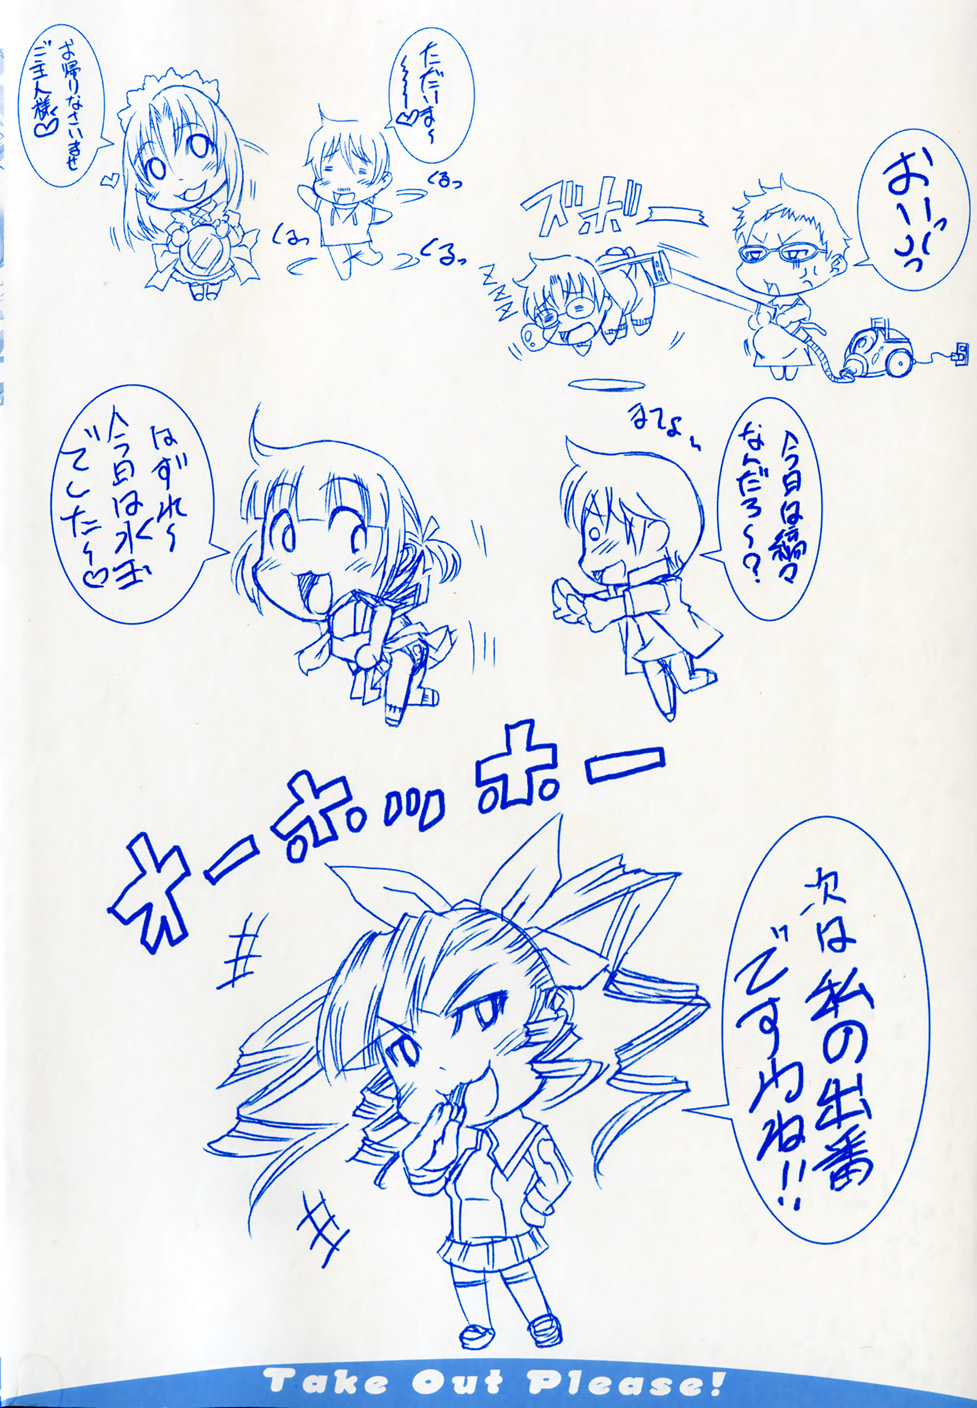 ただいま〜
〜〜〜♡
お帰りなさいませ
ご主人様♡
くるっ
くるっ
くるっ
おいっっ
ズボーー
ZZZZ
今日は縞々
なんだろ〜?
まてよぃ
はずれ〜
今日は水玉
でした〜♡
オーホッホー
次は私の出番
ですわね!!
Take Out Please!